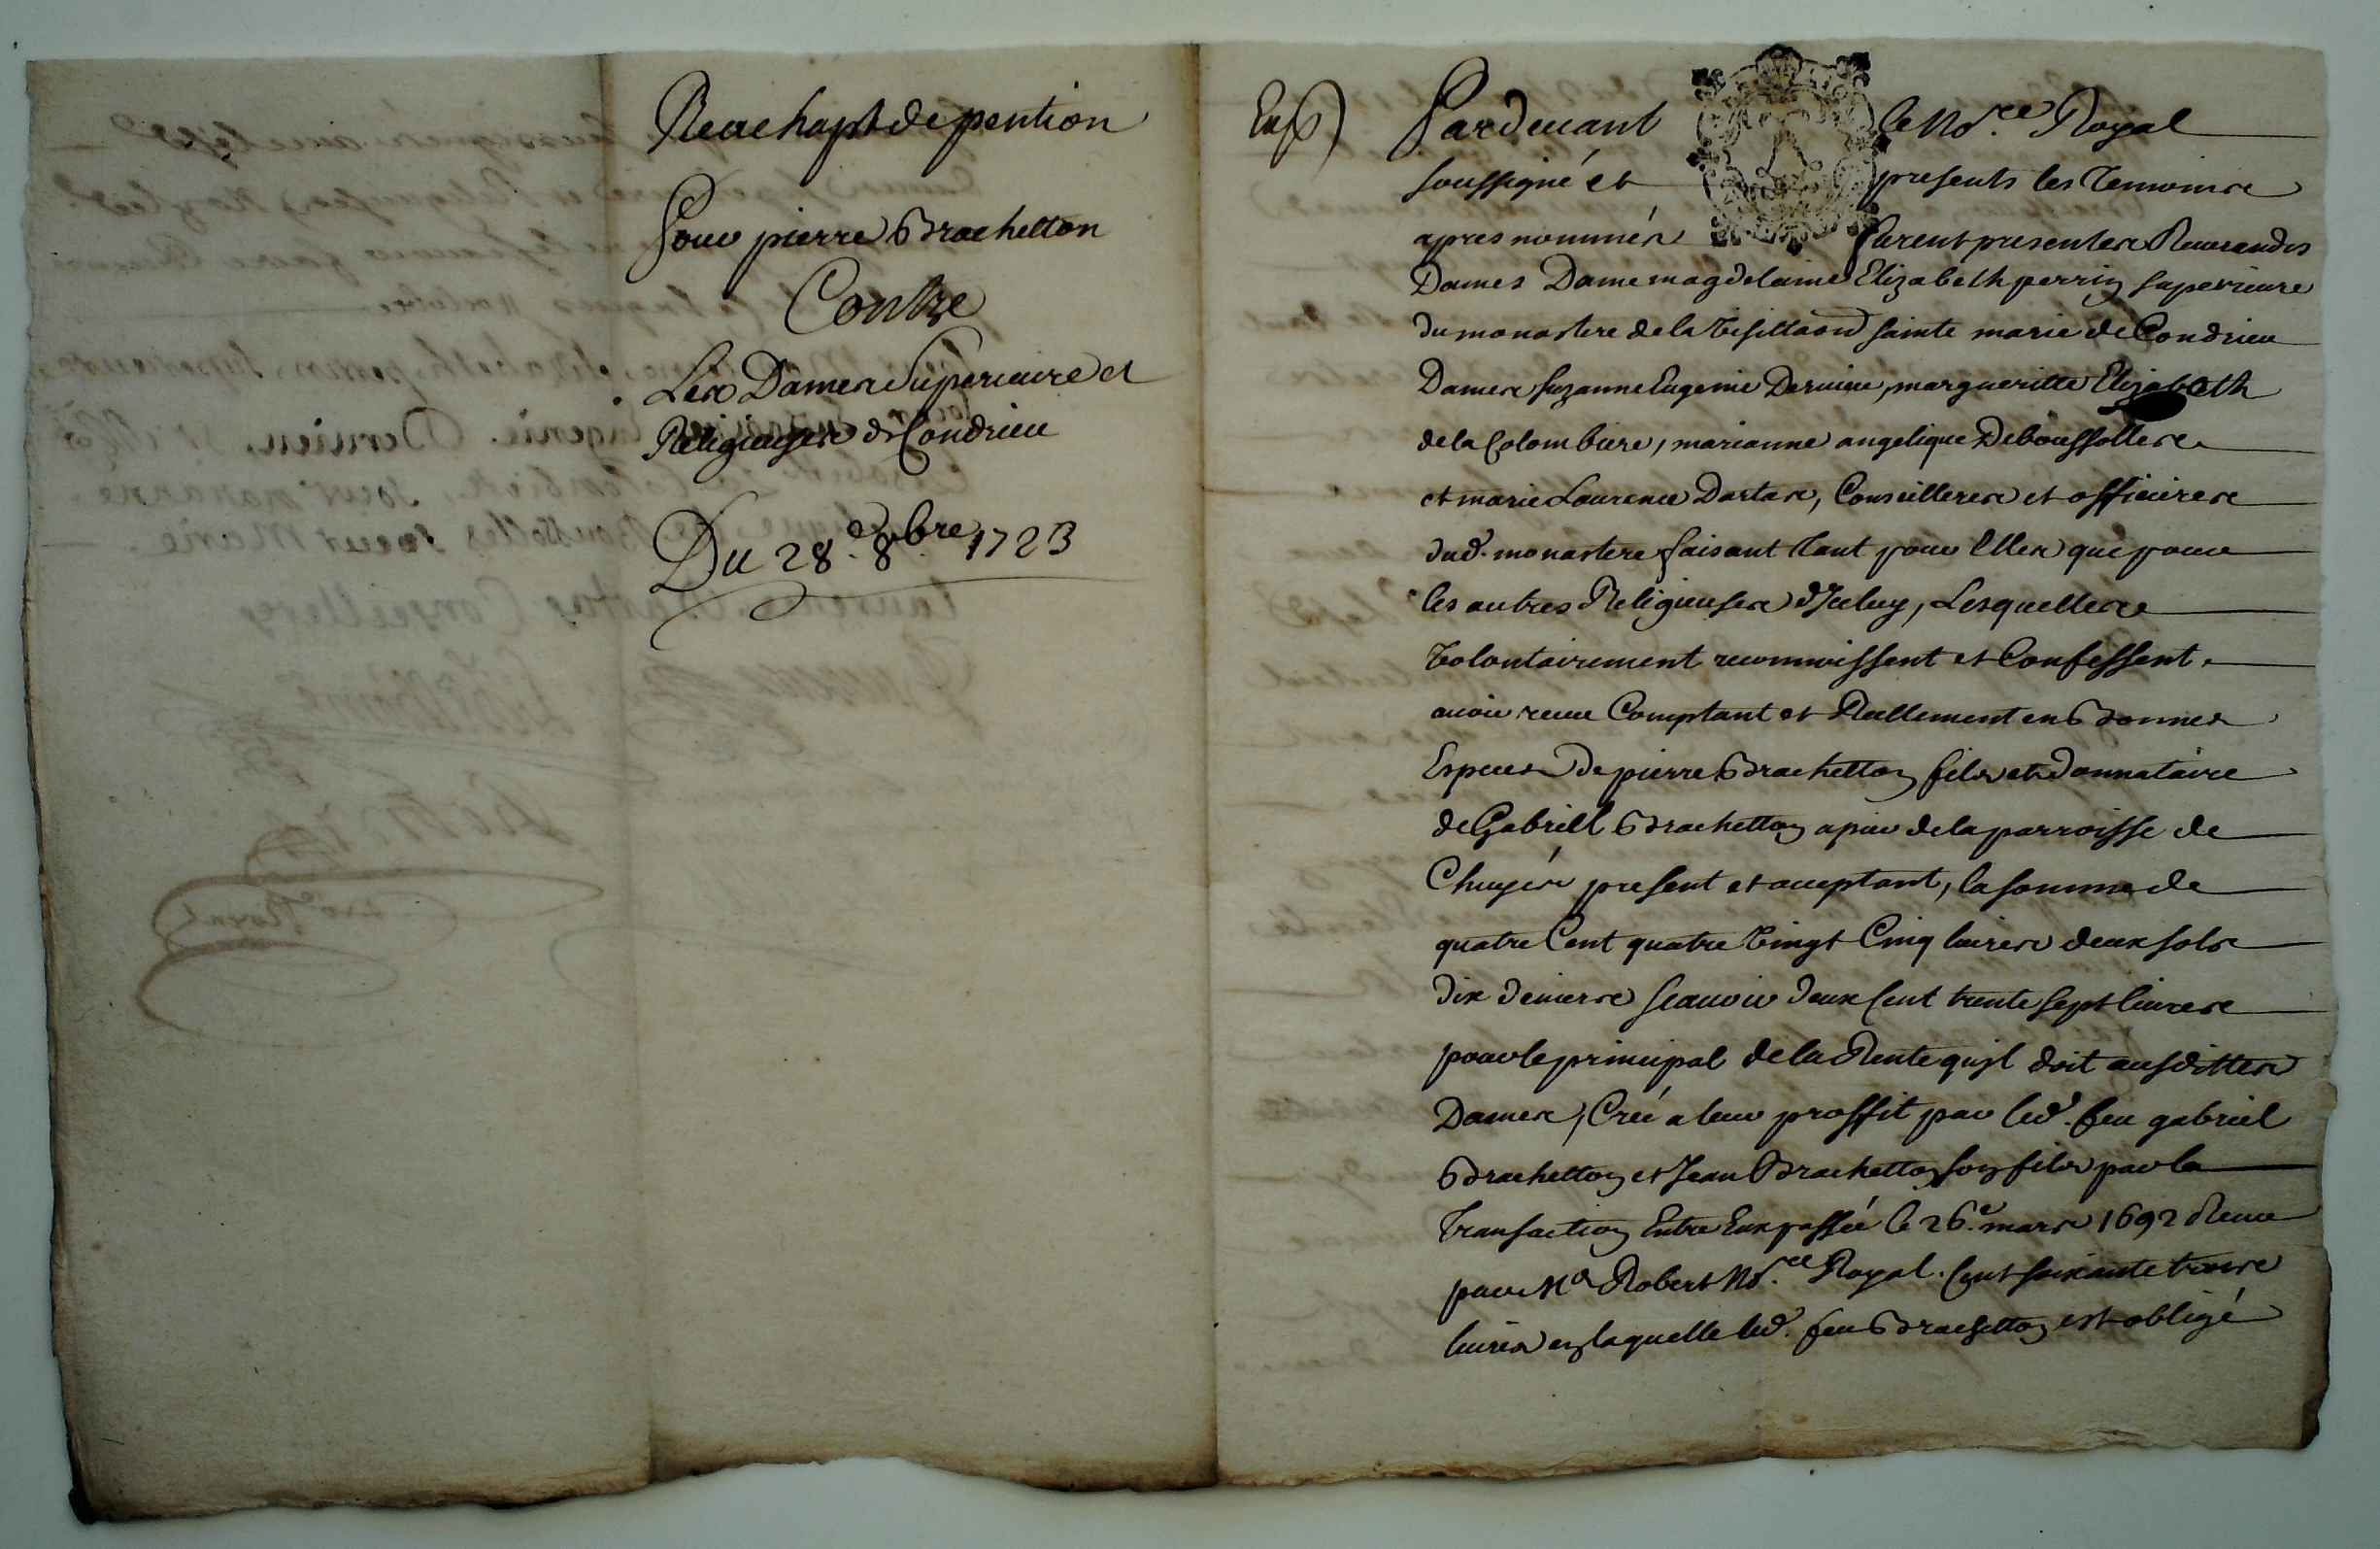 Reachapt de pention
Pour pierre Brachetton
Contre
Les Dames Superieure et
Religieuses de Condrieu
Du 28.e 8bre 1723
Exp)
Pardeuant le No.re Royal
soussigné et presents les Temoins
apres nommés furent presentes Reuerandes
Dames Dame magdelaine Elizabeth perrin superieure
du monastere de la Visittaon sainte marie de Condrieu
Dames suzanne Eugenie Deruieu, margueritte Elizabeth
de la Colombiere, marianne angelique Deboussolles
et marie Laurence Dartas, Conseilleres et officieres
dud. monastere faisant tant pour Elles que pour
les autres Religieuses d'Iceluy, Lesquelles
Volontairement reconnoissent et Confessent
auoir receu Comptant et Reellement en Bonnes
Especes de pierre Brachetton fils et donnataire
de Gabriell Brachetton de la parroisse de
Chuyés present et acceptant, la somme de
quatre Cent quatre Vingt Cinq liures deux sols
dix deniers scauoir deux Cent trente sept liures
pour le principal de la Rente qu'jl doit ausdittes
Dames, Creé a leur proffit par led. feu gabriel
Brachetton et Jean Brachetton son fils par la
Transaction Entre Eux passée le 26.e mars 1692 Receue
par Me Robert No.re Royal. Cent soixante trois
liures en laquelle led. feu Brachetton est obligé